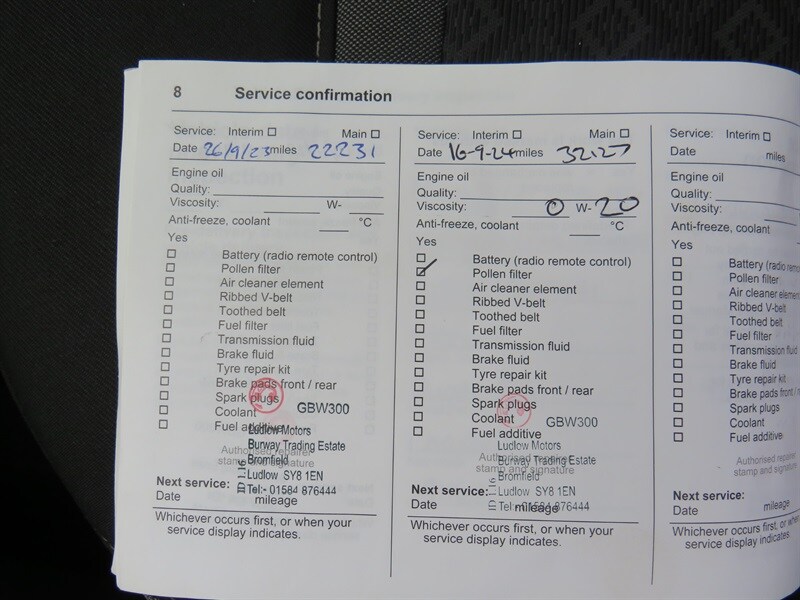 8 Service confirmation
Service: Interim Main
Date 26/9/23 miles 22231
Engine oil
Quality:
Viscosity: W-
Anti-freeze, coolant °C
Yes
Battery (radio remote control)
Pollen filter
Air cleaner element
Ribbed V-belt
Toothed belt
Fuel filter
Transmission fluid
Brake fluid
Tyre repair kit
Brake pads front / rear
Spark plugs
Coolant GBW300
Fuel additive
Ludlow Motors
Burway Trading Estate
Authorised repairer
Bromfield
stamp and signature
Ludlow SY8 1EN
Next service:
Tel:- 01584 876444
Date mileage
Whichever occurs first, or when your
service display indicates.
Service: Interim Main
Date 16-9-24 miles 32127
Engine oil
Quality:
Viscosity: 0 W- 20
Anti-freeze, coolant °C
Yes
Battery (radio remote control)
Pollen filter
Air cleaner element
Ribbed V-belt
Toothed belt
Fuel filter
Transmission fluid
Brake fluid
Tyre repair kit
Brake pads front / rear
Spark plugs
Coolant GBW300
Fuel additive
Ludlow Motors
Authorised repairer
Burway Trading Estate
stamp and signature
Bromfield
Next service:
Ludlow SY8 1EN
Tel:- 01584 876444
Date mileage
Whichever occurs first, or when your
service display indicates.
Service: Interim
Date miles
Engine oil
Quality:
Viscosity:
Anti-freeze, coolant
Yes
Battery (radio
Pollen filter
Air cleaner element
Ribbed V-belt
Toothed belt
Fuel filter
Transmission fluid
Brake fluid
Tyre repair kit
Brake pads front
Spark plugs
Coolant
Fuel additive
Authorised
stamp and
Next service:
Date mileage
Whichever occurs first, or
service display indicates.